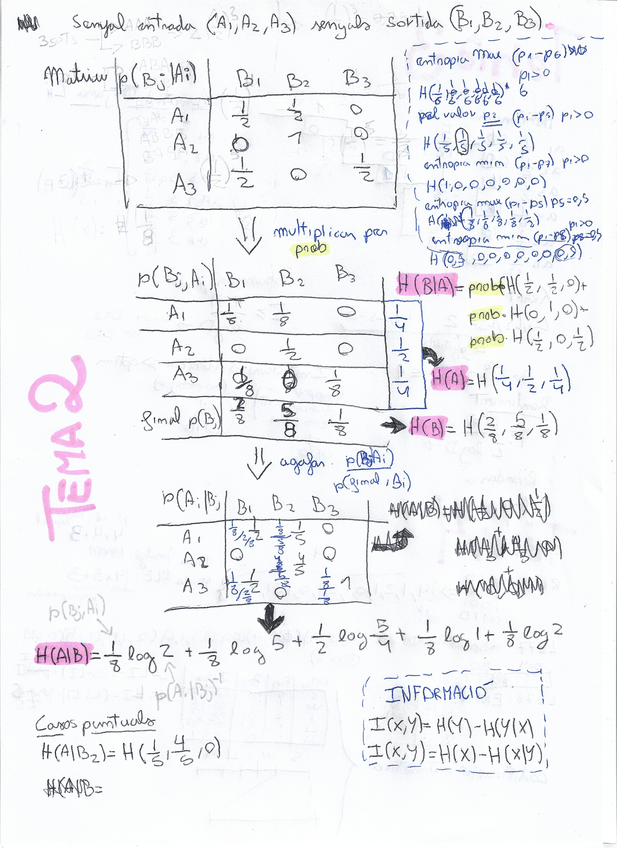 Senyal entrada (A₁, A₂, A₃) senyals sortida (B₁, B₂, B₃).
Matriu p(Bj|Ai) B₁ B₂ B₃
A₁ 1/2 1/2 0
A₂ 0 1 0
A₃ 1/2 0 1/2
entropia max (p₁-p₆)
pi>0
H(1/6 1/6 1/6 1/6 1/6 1/6)
pel valor p₂ (p₁-p₅) pi>0
H(1/5, 1/5, 1/5, 1/5, 1/5)
entropia mim (p₁-p₇) pi>0
H(1,0,0,0,0,0,0)
entropia max (p₁-p₅) p5=0,5
1/8, 1/8, 1/8, 1/8)
pi>0
entropia mim (p₁-p₈) p8=0,5
H(0,5,0,0,0,0,0,0,0,5)
multiplicar per
prob
p(Bj,Ai) B₁ B₂ B₃
A₁ 1/8 1/8 0 1/4
A₂ 0 1/2 0 1/2
A₃ 1/8 0 1/8 1/4
final p(B) 2/8 5/8 1/8
H(B|A)= prob·H(1/2, 1/2, 0)+
prob·H(0,1,0)+
prob·H(1/2, 0, 1/2)
H(A)=H(1/4, 1/2, 1/4)
H(B)=H(2/8, 5/8, 1/8)
TEMA 2
agafar p(BjAi)/p(final, Ai)
p(Ai|Bj B₁ B₂ B₃
A₁ 1/8/2/8 1/2 1/5 0
A₂ 0 4/5 0
A₃ 1/8/2/8 1/2 0 1/8/1/8 1
p(Bj,Ai)
H(A|B)=1/8 log 2 + 1/8 log 5 + 1/2 log 5/4 + 1/8 log 1 + 1/8 log 2
p(Ai|Bj)⁻¹
INFORMACIÓ
I(X,Y)=H(Y)-H(Y|X)
I(X,Y)=H(X)-H(X|Y)
Casos puntuals
H(A|B₂)=H(1/5, 4/5, 0)